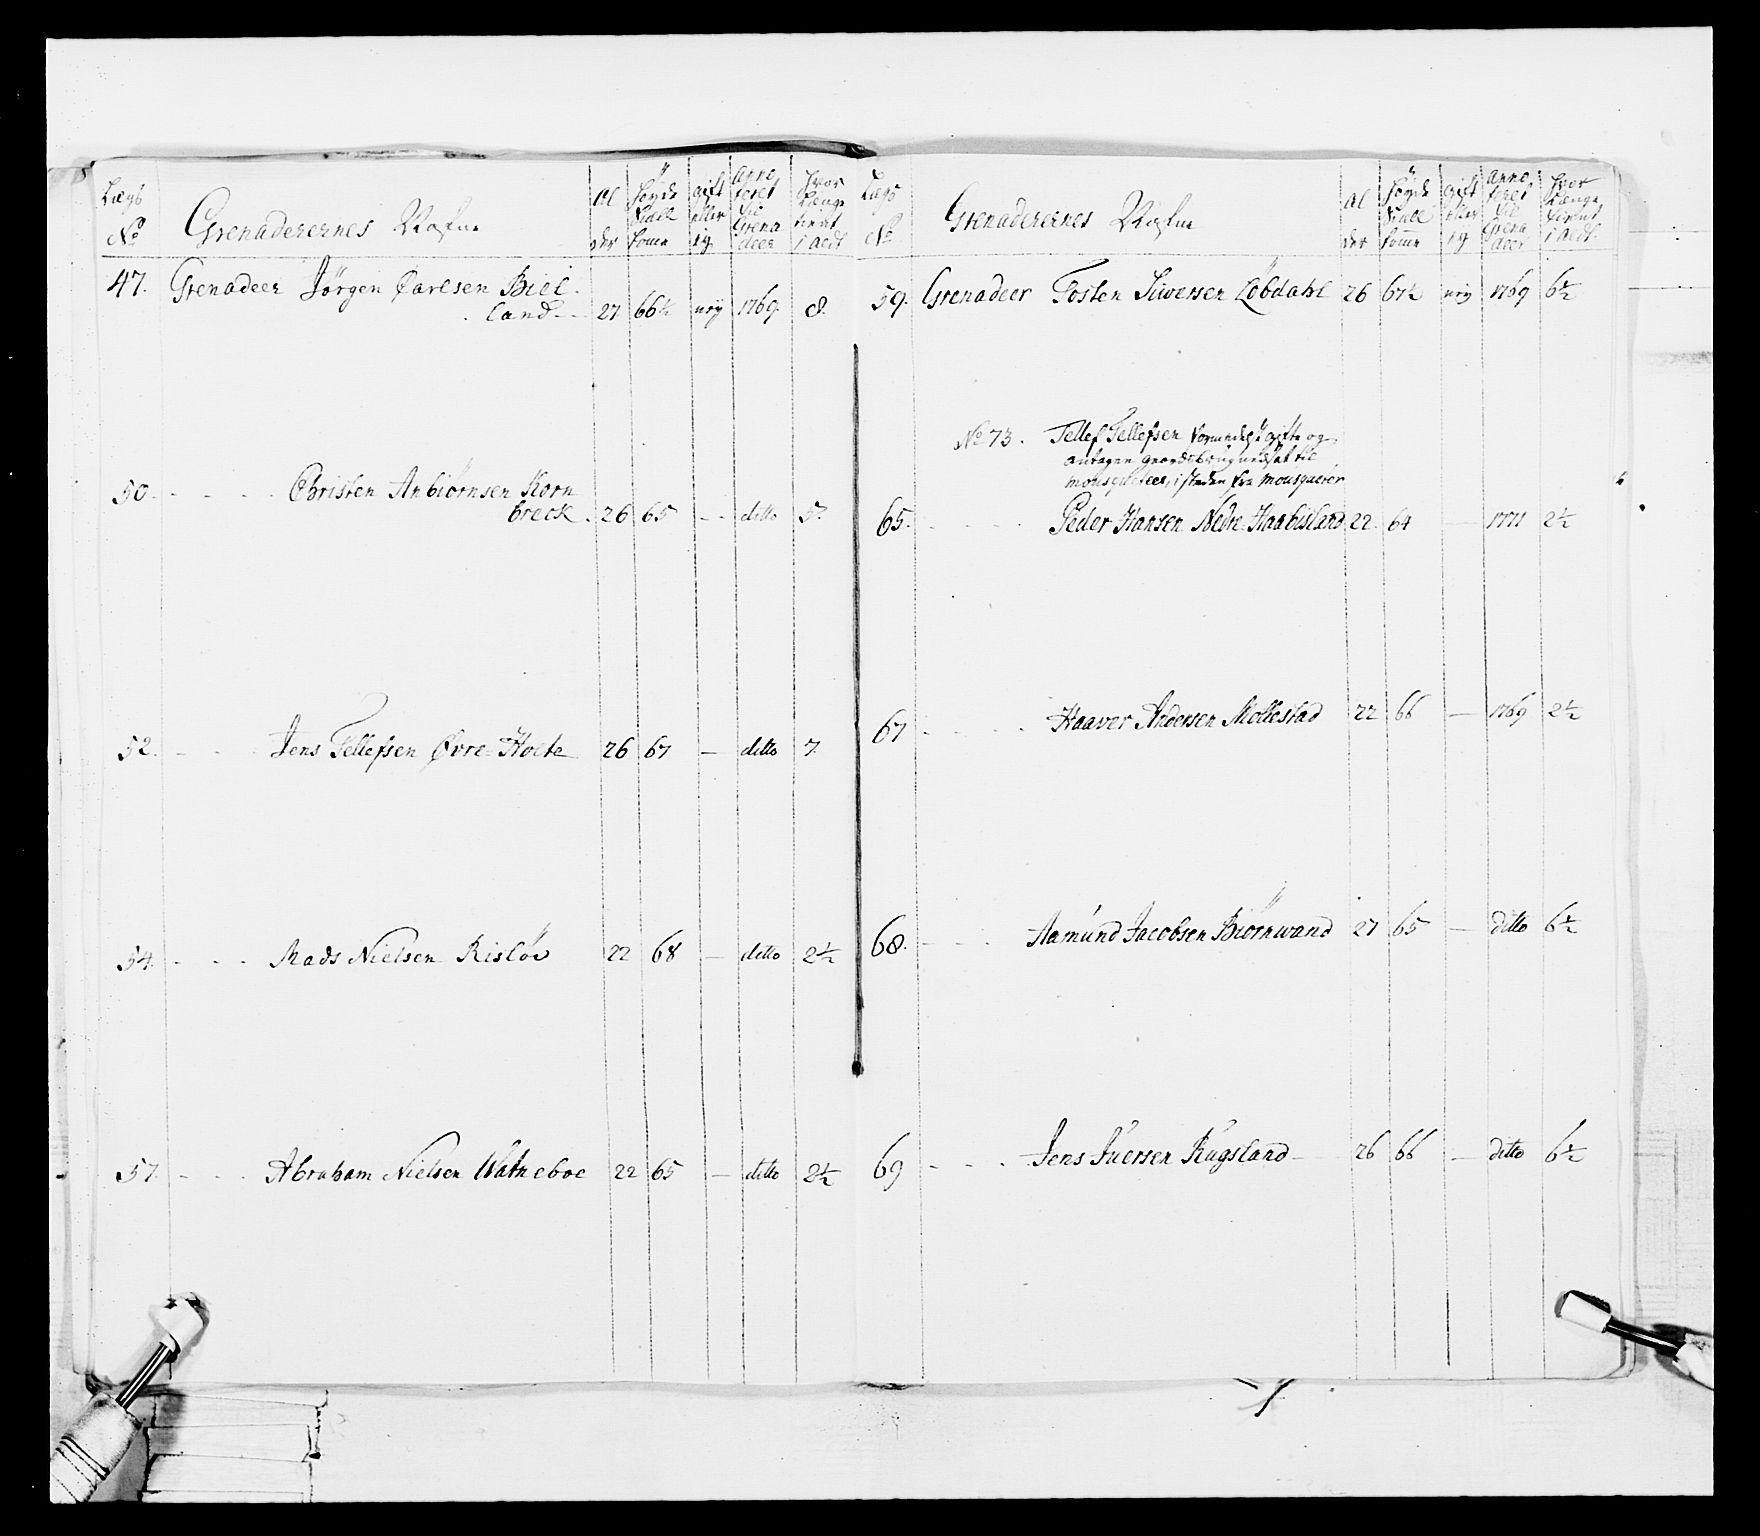 Lægs
No
Grenaderernes Nafne
Al
der
Høyde
Tall
Tome
gift
eller
ig
anno
teret
til
Grena
deer
hvor
længe
tient
i aldt
47. Grenadeer Jörgen Carlsen Biel-
land 27 66½ uig 1769. 8.
50. Christen Anbiörnsen Korn
breck. 26 65 - ditto 5.
52. Jens Tellefsen Øvre Holte 26 67 - ditto 7.
54. Mads Nielsen Rislöv 22 68 - ditto 2½
57. Abraham Nielsen Watneboe 22 65 - ditto 2½
Lægs
No
Grenaderernes Nafne
Al
der
Høyde
Tall
Tome
gift
eller
ig
anno
teret
til
Grena
deer
hvor
længe
tient
i aldt.
59. Grenadeer Tosten Siwersen Löbdahl 26 67½ uig 1769 6½
No 73. Tellef Tellefsen formedelst gifte og
antagen gaardsbrug udsat til
mousqueteer, isteden fra Mousqueter
65. Peder Hansen Nedre Haabisland 22 64 - 1771 2½
67 Haaver Andersen Mollestad 22 66 - 1769 2½
68. Aamund Jacobsen Biörnwand 27 65 - ditto 6½
69 Jens Iuersen Rugsland 26 66 - ditto 6½